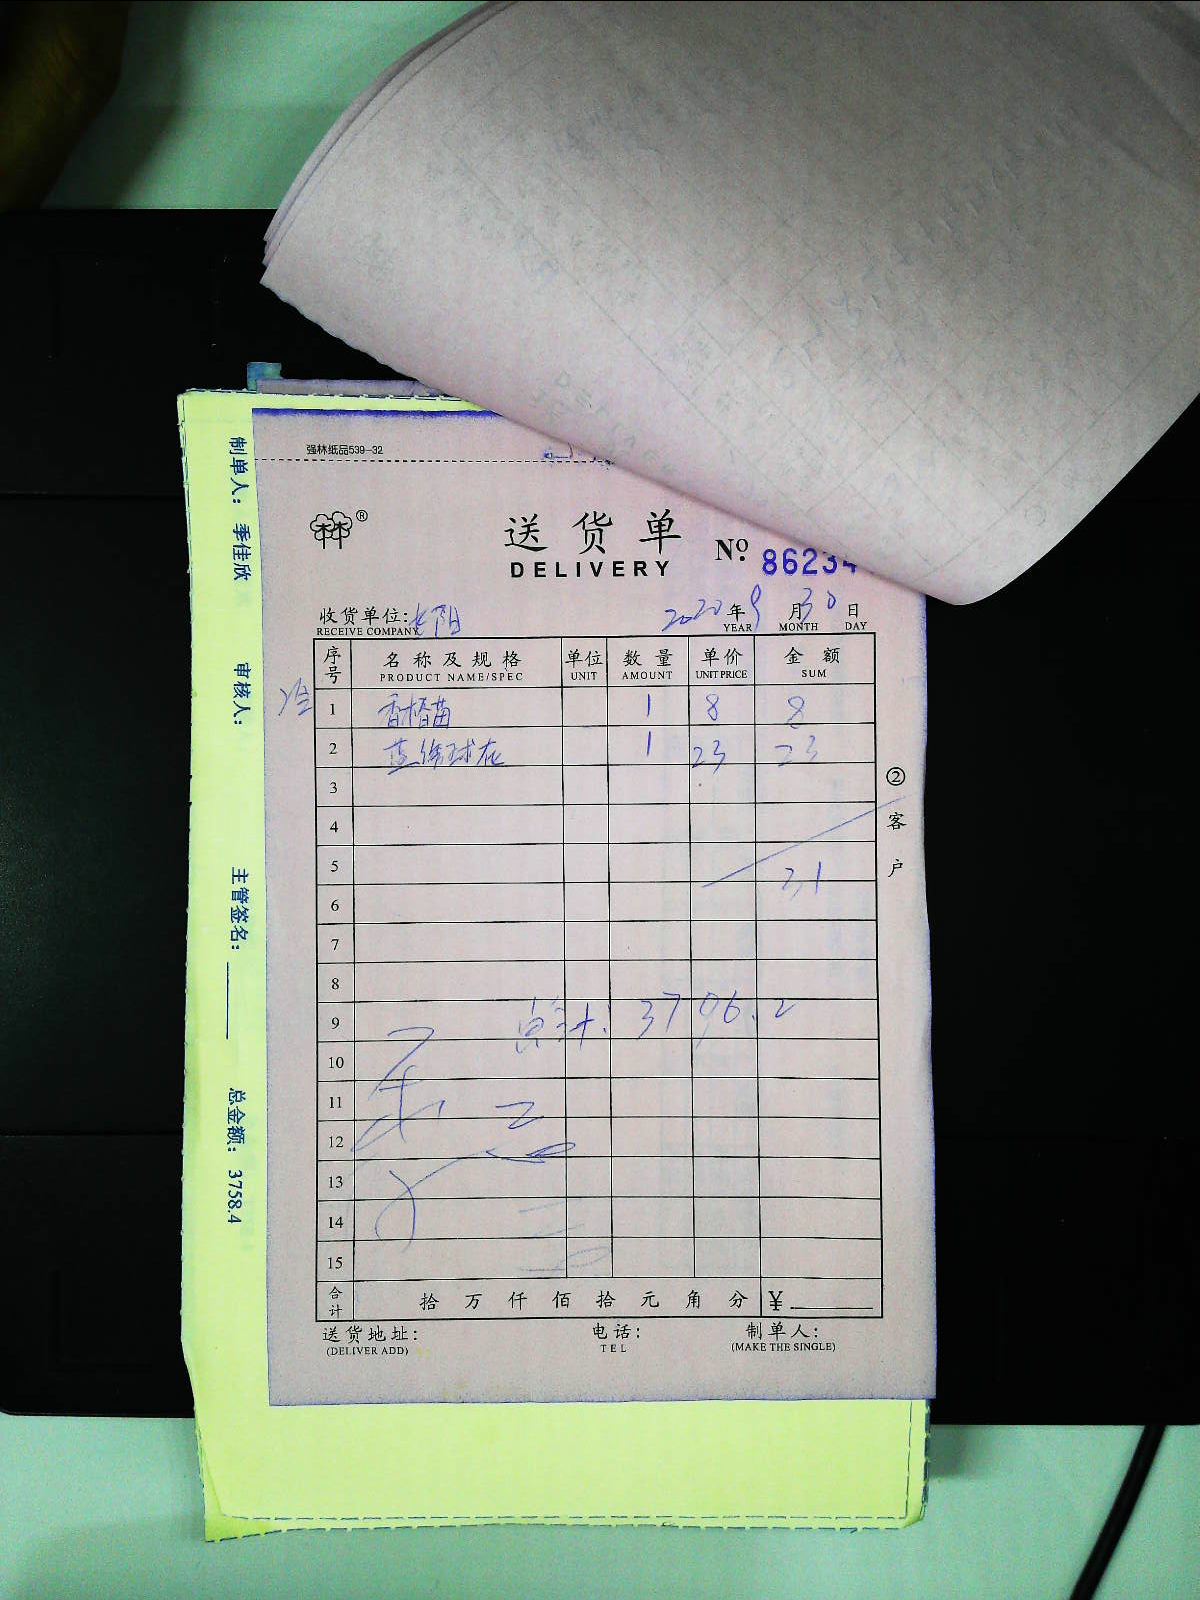 强林纸品539-32
®
送货单
DELIVERY
Nº. 86234
收货单位: 沈阳
RECEIVE COMPANY
2020年9月30日
YEAR MONTH DAY
序号 名称及规格 单位 数量 单价 金额
PRODUCT NAME/SPEC UNIT AMOUNT UNIT PRICE SUM
1 香椿苗 1 8 8
2 1 23 23
3
4
5 31
6
7
8
9 总计: 3796.2
10
11
12
13
14
15
合计 拾 万 仟 佰 拾 元 角 分 ¥
送货地址: 电话: 制单人:
(DELIVER ADD) TEL (MAKE THE SINGLE)
②客户
制单人: 季佳欣 审核人: 主管签名: 总金额: 3758.4